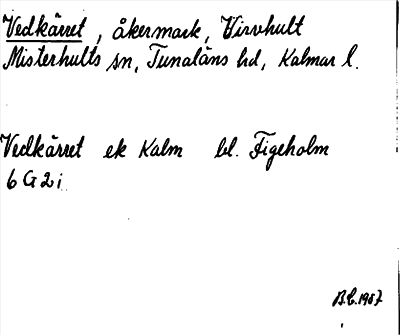 Vedkärret, åkermark, Virvhult
Misterhults sn, Tunaläns hd, Kalmar l.
Vedkärret ek Kalm bl. Figeholm
6 G 2 i
1967